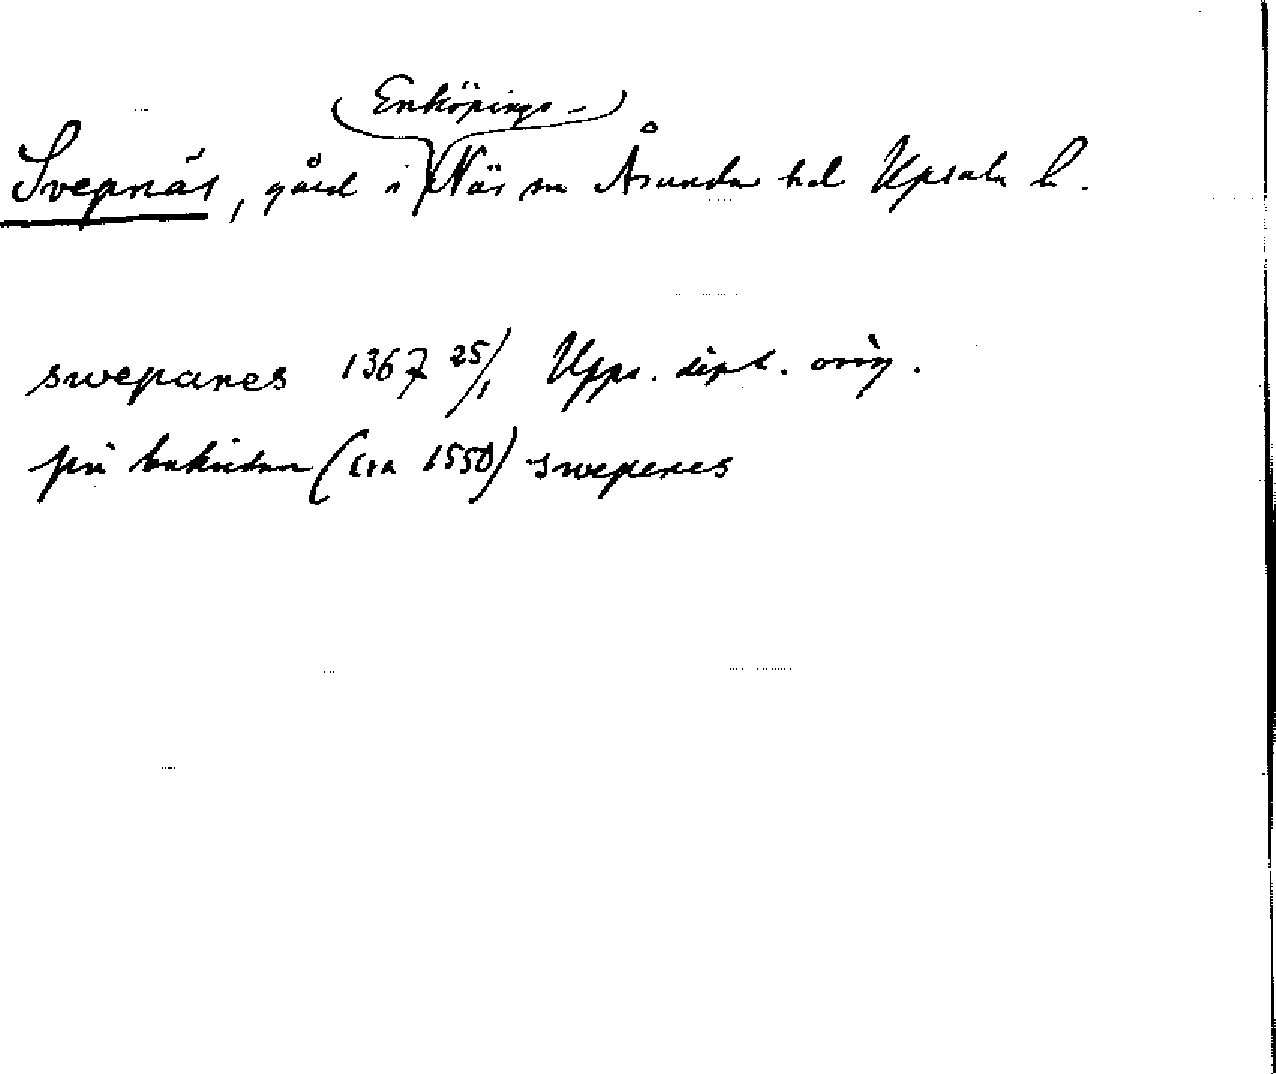 Enköpings-
Svepnäs, gård i Näs sn Åsunda hd Upsala l.
swepanes 1367 25/1 Upps. dipl. orig.
på baksidan (ca 1550) swepenes